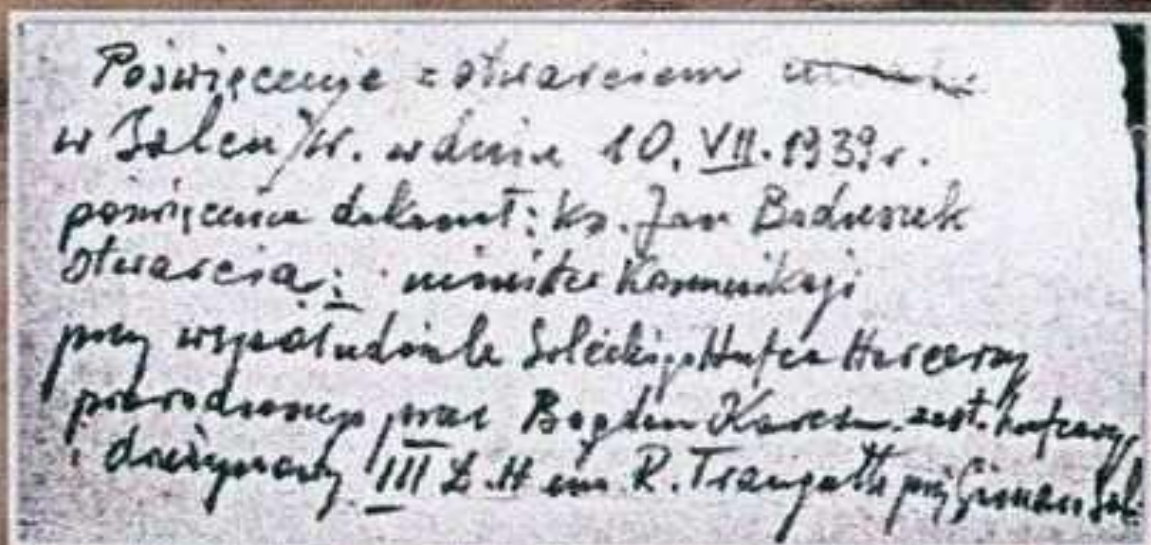 Poświęcenie z otwarciem
w Solcu/W. w dniu 10. VII. 1939 r.
poświęcenia dokonał: ks. Jan
otwarcia: minister Komunikacji
przy współudziale Soleckiego Hufca Harcerzy
prowadzonego przez Bogdan zast. hufcowego
i drużynowy III D.H im R. Traugutta przy Gimnazj. Sol.